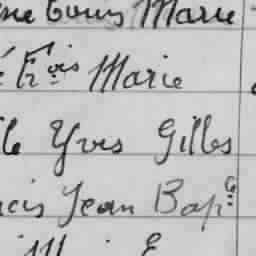 Louis Marie
Fr^ois Marie
Yves Gilles
cis Jean Bap^te